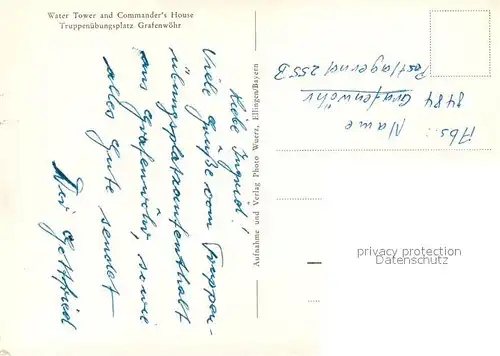 Water Tower and Commander's House
Truppenübungsplatz Grafenwöhr
Liebe Ingrid!
Viele Grüße vom Truppen-
übungsplatzaufenthalt
aus Grafenwöhr, sowie
alles Gute sendet
Dir Gottfried
Aufnahme und Verlag Photo Wuerz, Ellingen/Bayern
Abs.:
Name
8484 Grafenwöhr
Postlagernd 255 B
privacy protection
Datenschutz